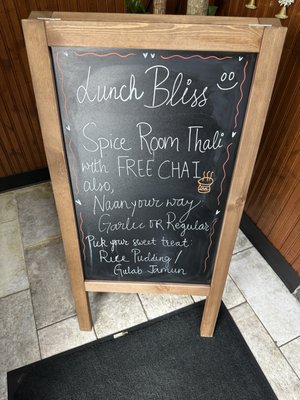 Lunch Bliss
Spice Room Thali
with FREE CHAI
also,
Naan your way
Garlic OR Regular
Pick your sweet treat:
Rice Pudding /
Gulab Jamun